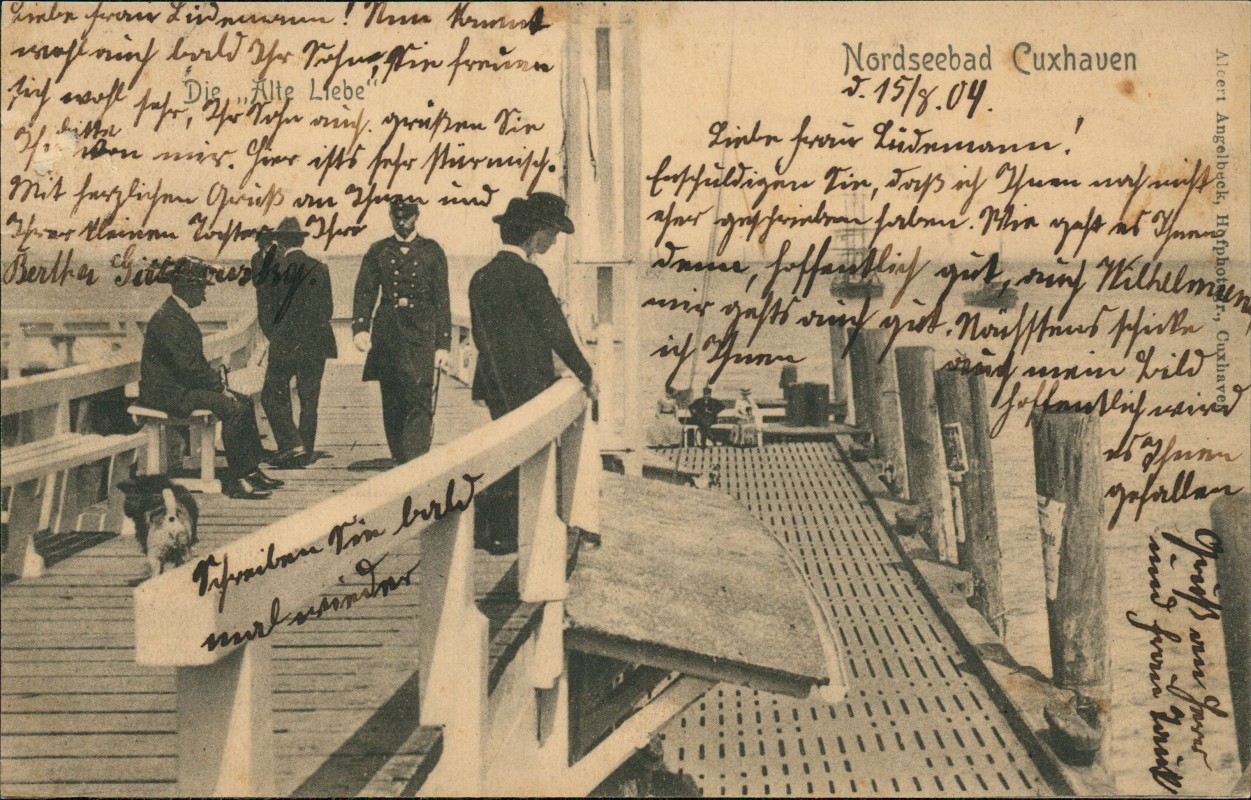 Nordseebad Cuxhaven
Die „Alte Liebe"
Albert Angelbeck, Hofphotogr., Cuxhaven
d. 15/8. 04.
Liebe Frau Lüdemann!
Entschuldigen Sie, daß ich Ihnen noch nicht
eher geschrieben haben. Wie geht es Ihnen
denn, hoffentlich gut, auch Wilhelm
mir gehts auch gut. Nächstens schicke
ich Ihnen auch mein Bild
hoffentlich wird
es Ihnen
gefallen
Liebe Frau Lüdemann! Nun kommt
wohl auch bald Ihr Sohn, Sie freuen
sich wohl sehr, Ihr Sohn auch. grüßen Sie
Ih. bitte von mir. Hier ists sehr stürmisch.
Mit herzlichen Gruß an Ihnen und
Ihrer kleinen Tochter Ihre
Bertha
Schreiben Sie bald
mal wieder
Gruß an Herr
und Frau